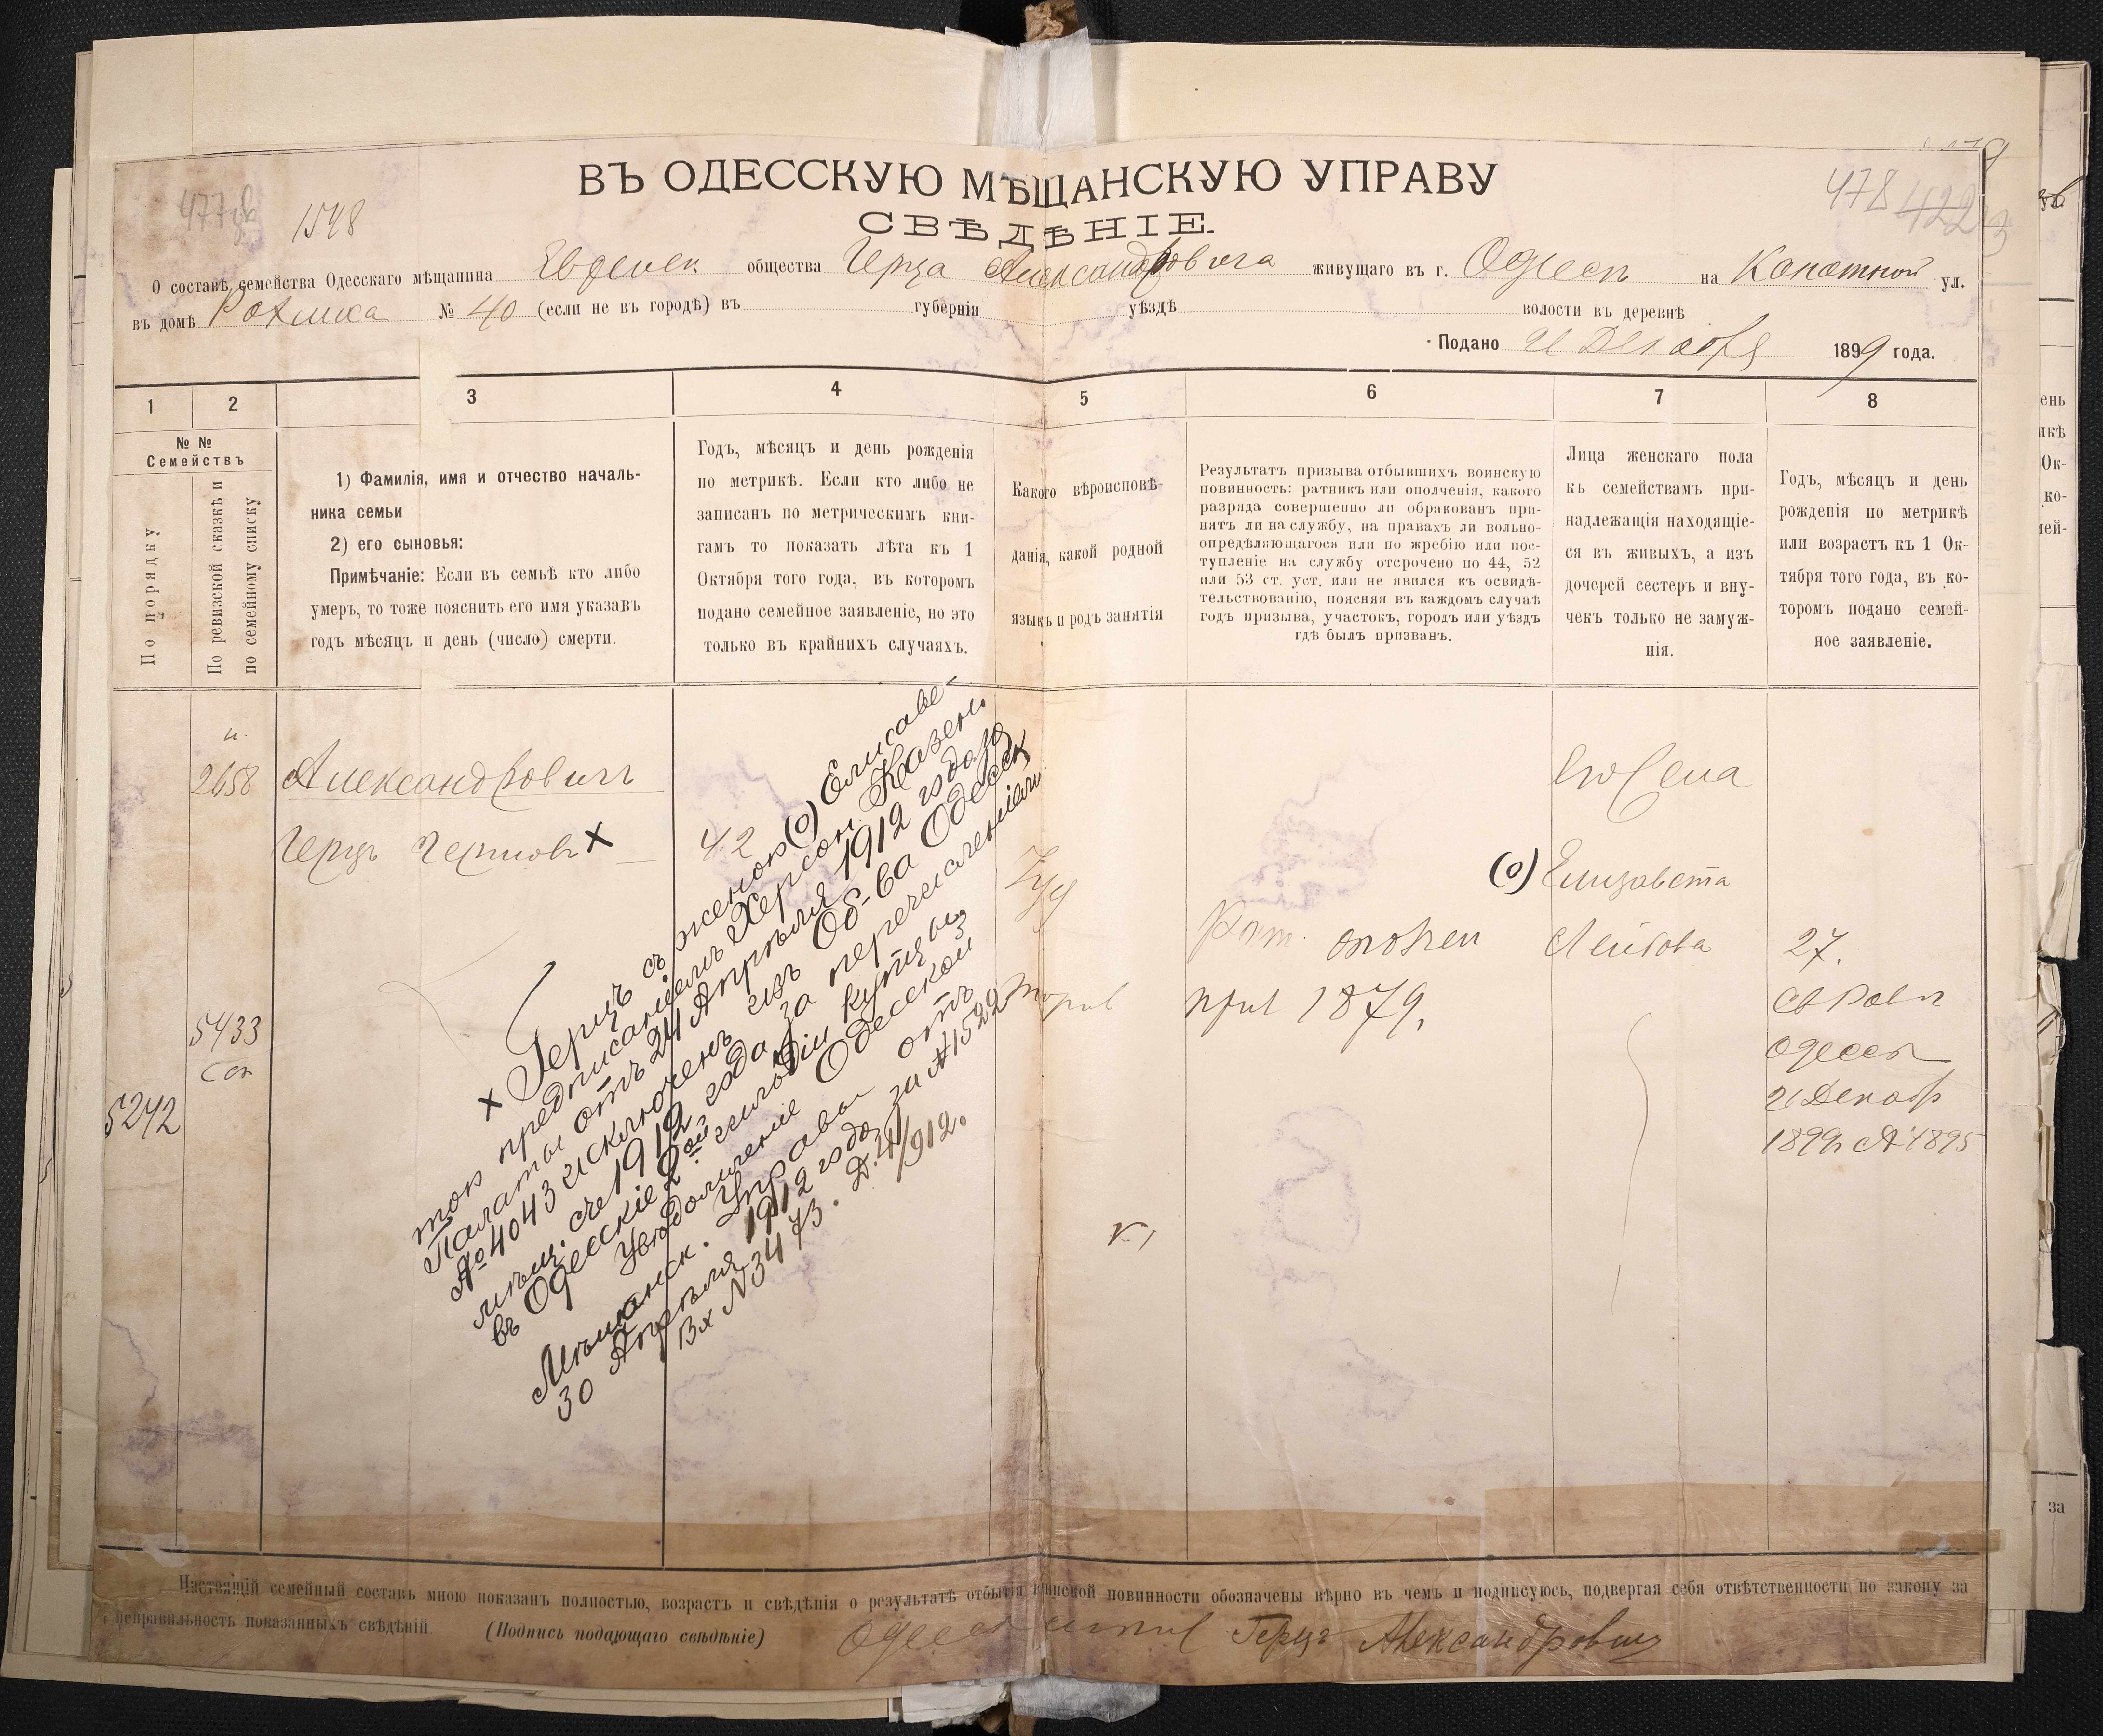 ВЪ ОДЕССКУЮ МѢЩАНСКУЮ УПРАВУ
СВѢДѢНІЕ.
1548
478
О составѣ семейства Одесскаго мѣщанина Еврейск общества Герца Александровича живущаго въ г. Одессѣ на Канатной ул.
въ домѣ № 40 (если не въ городѣ) въ губерніи уѣздѣ волости въ деревнѣ
Подано 21 Декабря 1899 года.
1
2
3
4
5
6
7
8
№ №
Семействъ
По порядку
По ревизской сказкѣ и
по семейному списку
1) Фамилія, имя и отчество началь-
ника семьи
2) его сыновья:
Примѣчаніе: Если въ семьѣ кто либо
умеръ, то тоже пояснить его имя указавъ
годъ мѣсяцъ и день (число) смерти.
Годъ, мѣсяцъ и день рожденія
по метрикѣ. Если кто либо не
записанъ по метрическимъ кни-
гамъ то показать лѣта къ 1
Октября того года, въ которомъ
подано семейное заявленіе, но это
только въ крайнихъ случаяхъ.
Какого вѣроисповѣ-
данія, какой родной
языкъ и родъ занятія
Результатъ призыва отбывшихъ воинскую
повинность: ратникъ или ополченія, какого
разряда совершенно ли обракованъ при-
нятъ ли на службу, на правахъ ли вольно-
опредѣляющагося или по жребію или пос-
тупленіе на службу отсрочено по 44, 52
или 53 ст. уст. или не явился къ освидѣ-
тельствованію, поясняя въ каждомъ случаѣ
годъ призыва, участокъ, городъ или уѣздъ
гдѣ былъ призванъ.
Лица женскаго пола
къ семействамъ при-
надлежащія находящіе-
ся въ живыхъ, а изъ
дочерей сестеръ и вну-
чекъ только не замуж-
нія.
Годъ, мѣсяцъ и день
рожденія по метрикѣ
или возрастъ къ 1 Ок-
тября того года, въ ко-
торомъ подано семей-
ное заявленіе.
2658
5433
5242
Александровичъ
Герцъ х
42
Іуд
Рат. ополчен
приз 1879.
Его жена
(о) Елизавета
Лейбова
27.
Св Рав
Одессы
21 Декабр
1899 № 1895
х Герцъ съ женою (о) Елисаве-
тою предписаніемъ Херсон. Казен.
Палаты отъ 24 Апрѣля 1912 года за
№ 4043 исключенъ изъ Об-ва Одесск
мѣщ. съ 1912 года за перечисленіемъ
въ Одесскіе 2ой гильдіи купцы,
Увѣдомленіе Одесской
Мѣщанск. Управы отъ
30 Апрѣля 1912 года за № 1522
Вх № 3473. Д. 41/912.
Настоящій семейный составъ мною показанъ полностью, возрастъ и свѣдѣнія о результатѣ отбытія воинской повинности обозначены вѣрно въ чемъ и подписуюсь, подвергая себя отвѣтственности по закону за
неправильность показанныхъ свѣдѣній. (Подпись подающаго свѣдѣніе) Герцъ Александровичъ